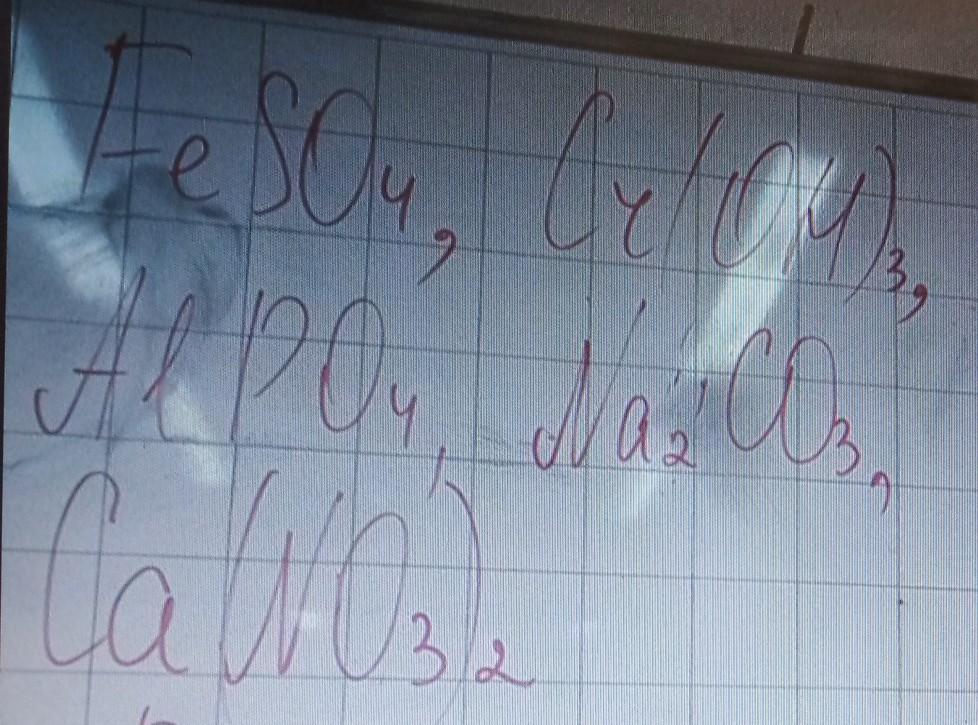 FeSO₄, Cr(OH)₃,
AlPO₄, Na₂CO₃,
Ca(NO₃)₂